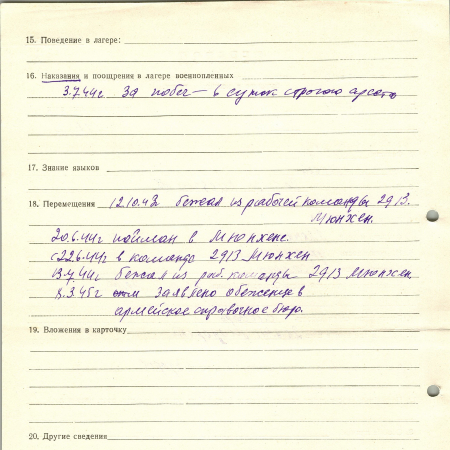 15. Поведение в лагере:
16. Наказания и поощрения в лагере военнопленных
3.7.44г. За побег – 6 суток строгого ареста
17. Знание языков
18. Перемещения 12.10.42 бежал из рабочей команды 2913.
Мюнхен.
20.6.44г пойман в Мюнхене.
с 22.6.44г в команде 2913 Мюнхен
13.7.44г бежал из раб. команды 2913 Мюнхен.
8.3.45г заявлено о бежавшем в
армейское справочное бюро.
19. Вложения в карточку
20. Другие сведения